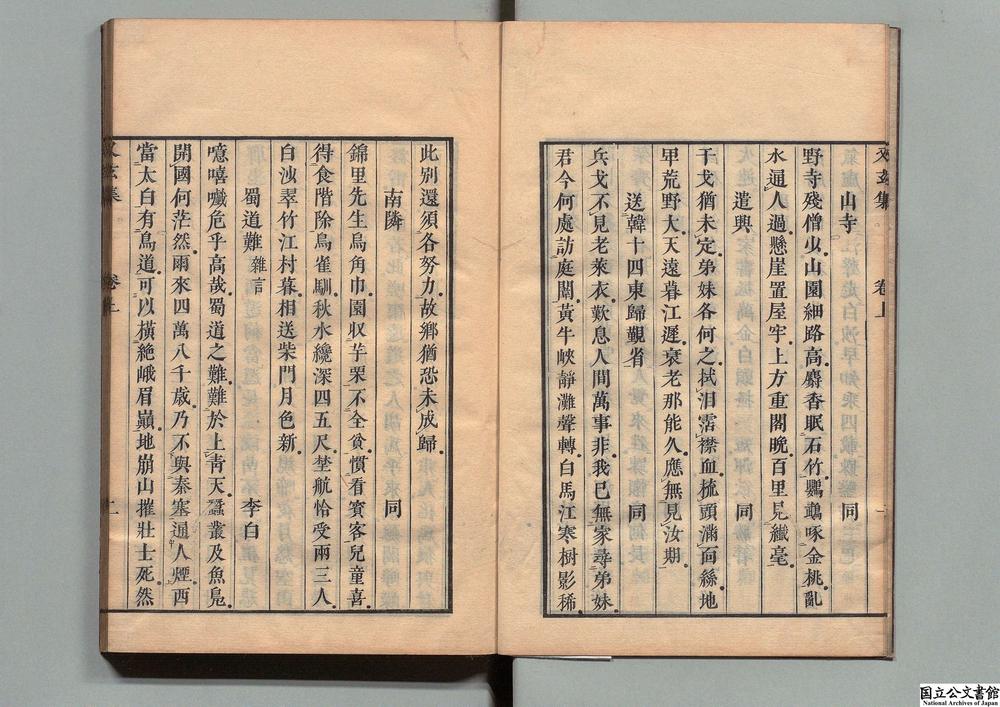 又玄集 卷上
山寺 同
野寺殘僧少山園細路高麝香眠石竹鸚鵡啄金桃亂
水通人過懸崖置屋牢上方重閣晚百里見纖毫
遣興 同
干戈猶未定弟妹各何之拭泪霑襟血梳頭滿面絲地
卑荒野大天遠暮江遲衰老那能久應無見汝期
送韓十四東歸覲省 同
兵戈不見老萊衣歎息人間萬事非我已無家尋弟妹
君今何處訪庭闈黃牛峽靜灘聲轉白馬江寒樹影稀
此別還須各努力故鄉猶恐未成歸
南隣 同
錦里先生烏角巾園収芋栗不全貧慣看賓客兒童喜
得食階除鳥雀馴秋水纔深四五尺埜航恰受兩三人
白沙翠竹江村暮相送柴門月色新
蜀道難 雜言 李白
噫嘻嚱危乎高哉蜀道之難難於上青天蠶叢及魚鳧
開國何茫然爾來四萬八千歲乃不與秦塞通人煙西
當太白有鳥道可以橫絶峨眉巔地崩山摧壯士死然
又玄集 卷上 十一
国立公文書館
National Archives of Japan